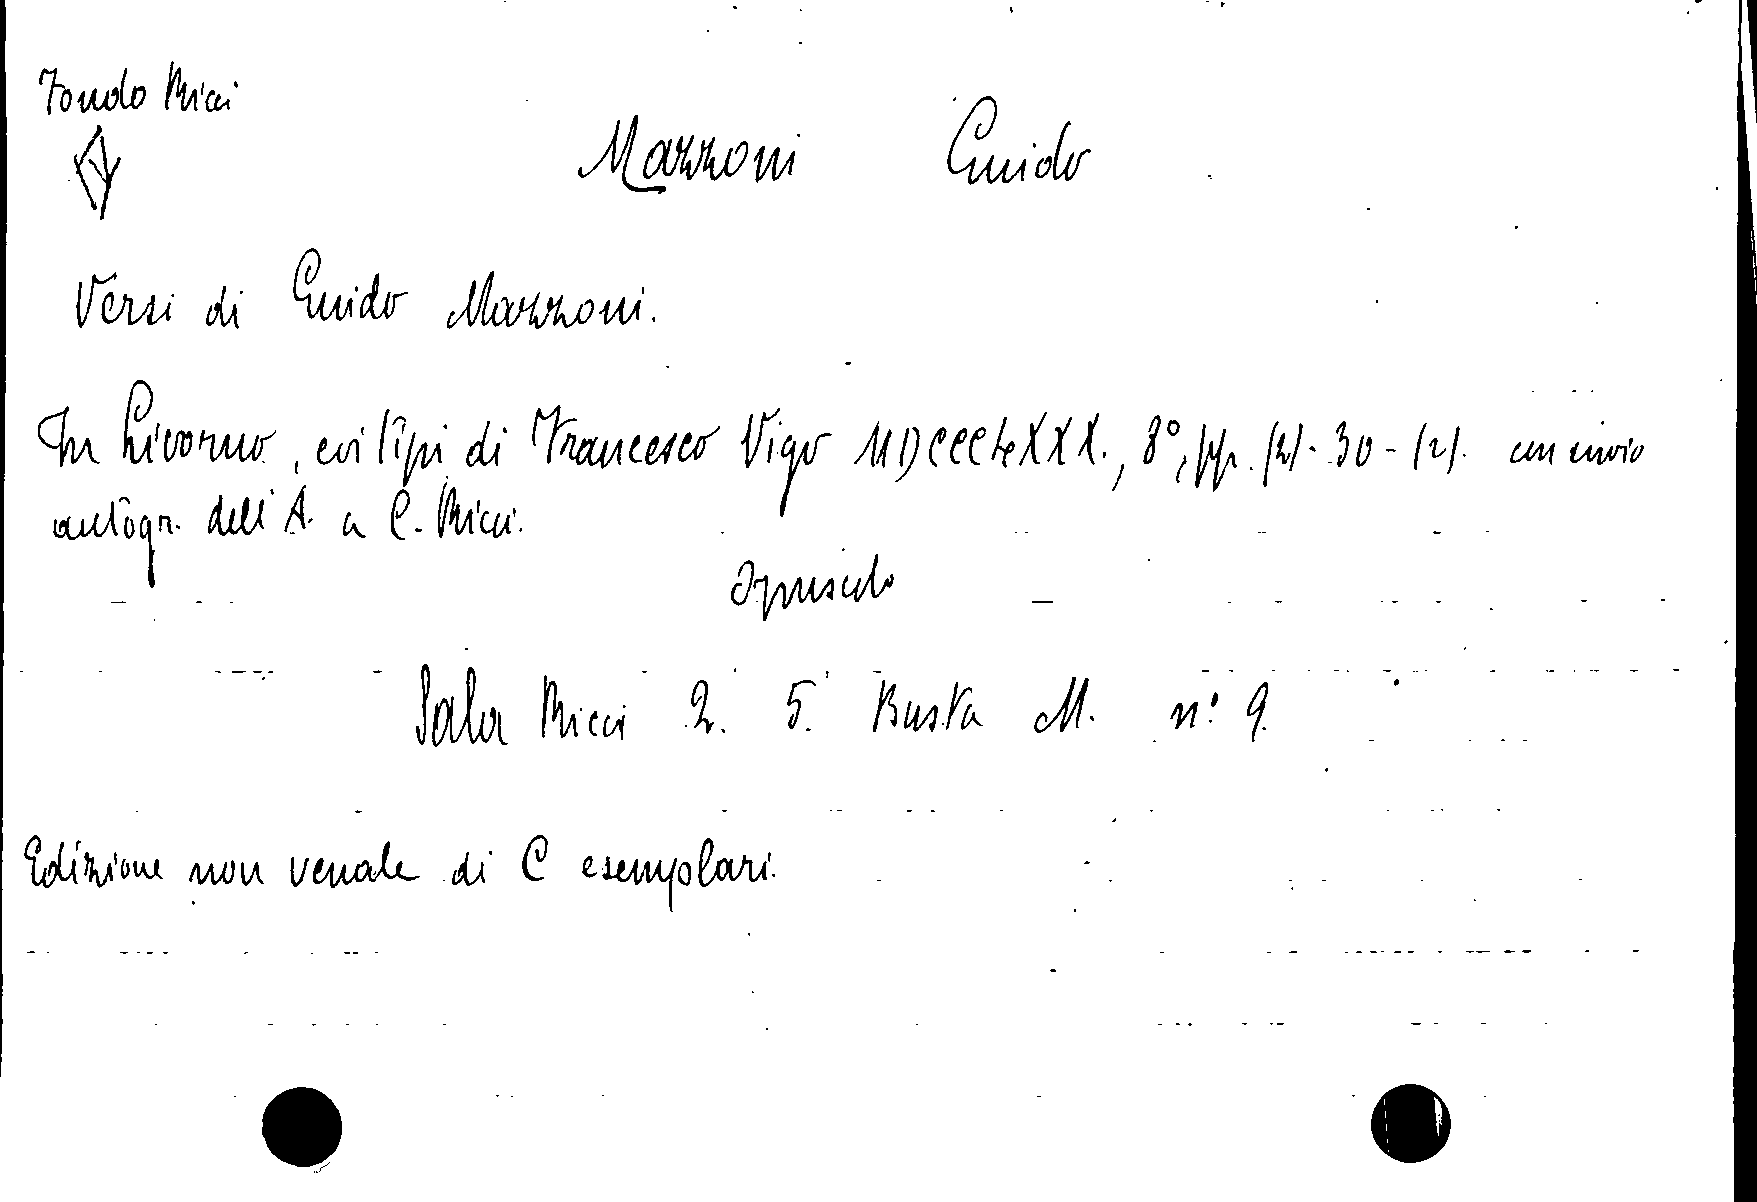 Fondo Ricci
Mazzoni Guido
Versi di Guido Mazzoni.
In Livorno, coi tipi di Francesco Vigo MDCCCLXXX., 8°, pp. (2)-30-(2). con invio
autogr. dell'A. a C. Ricci.
Opuscolo
Sala Ricci 2. 5. Busta M. n° 9.
Edizione non venale di C esemplari.